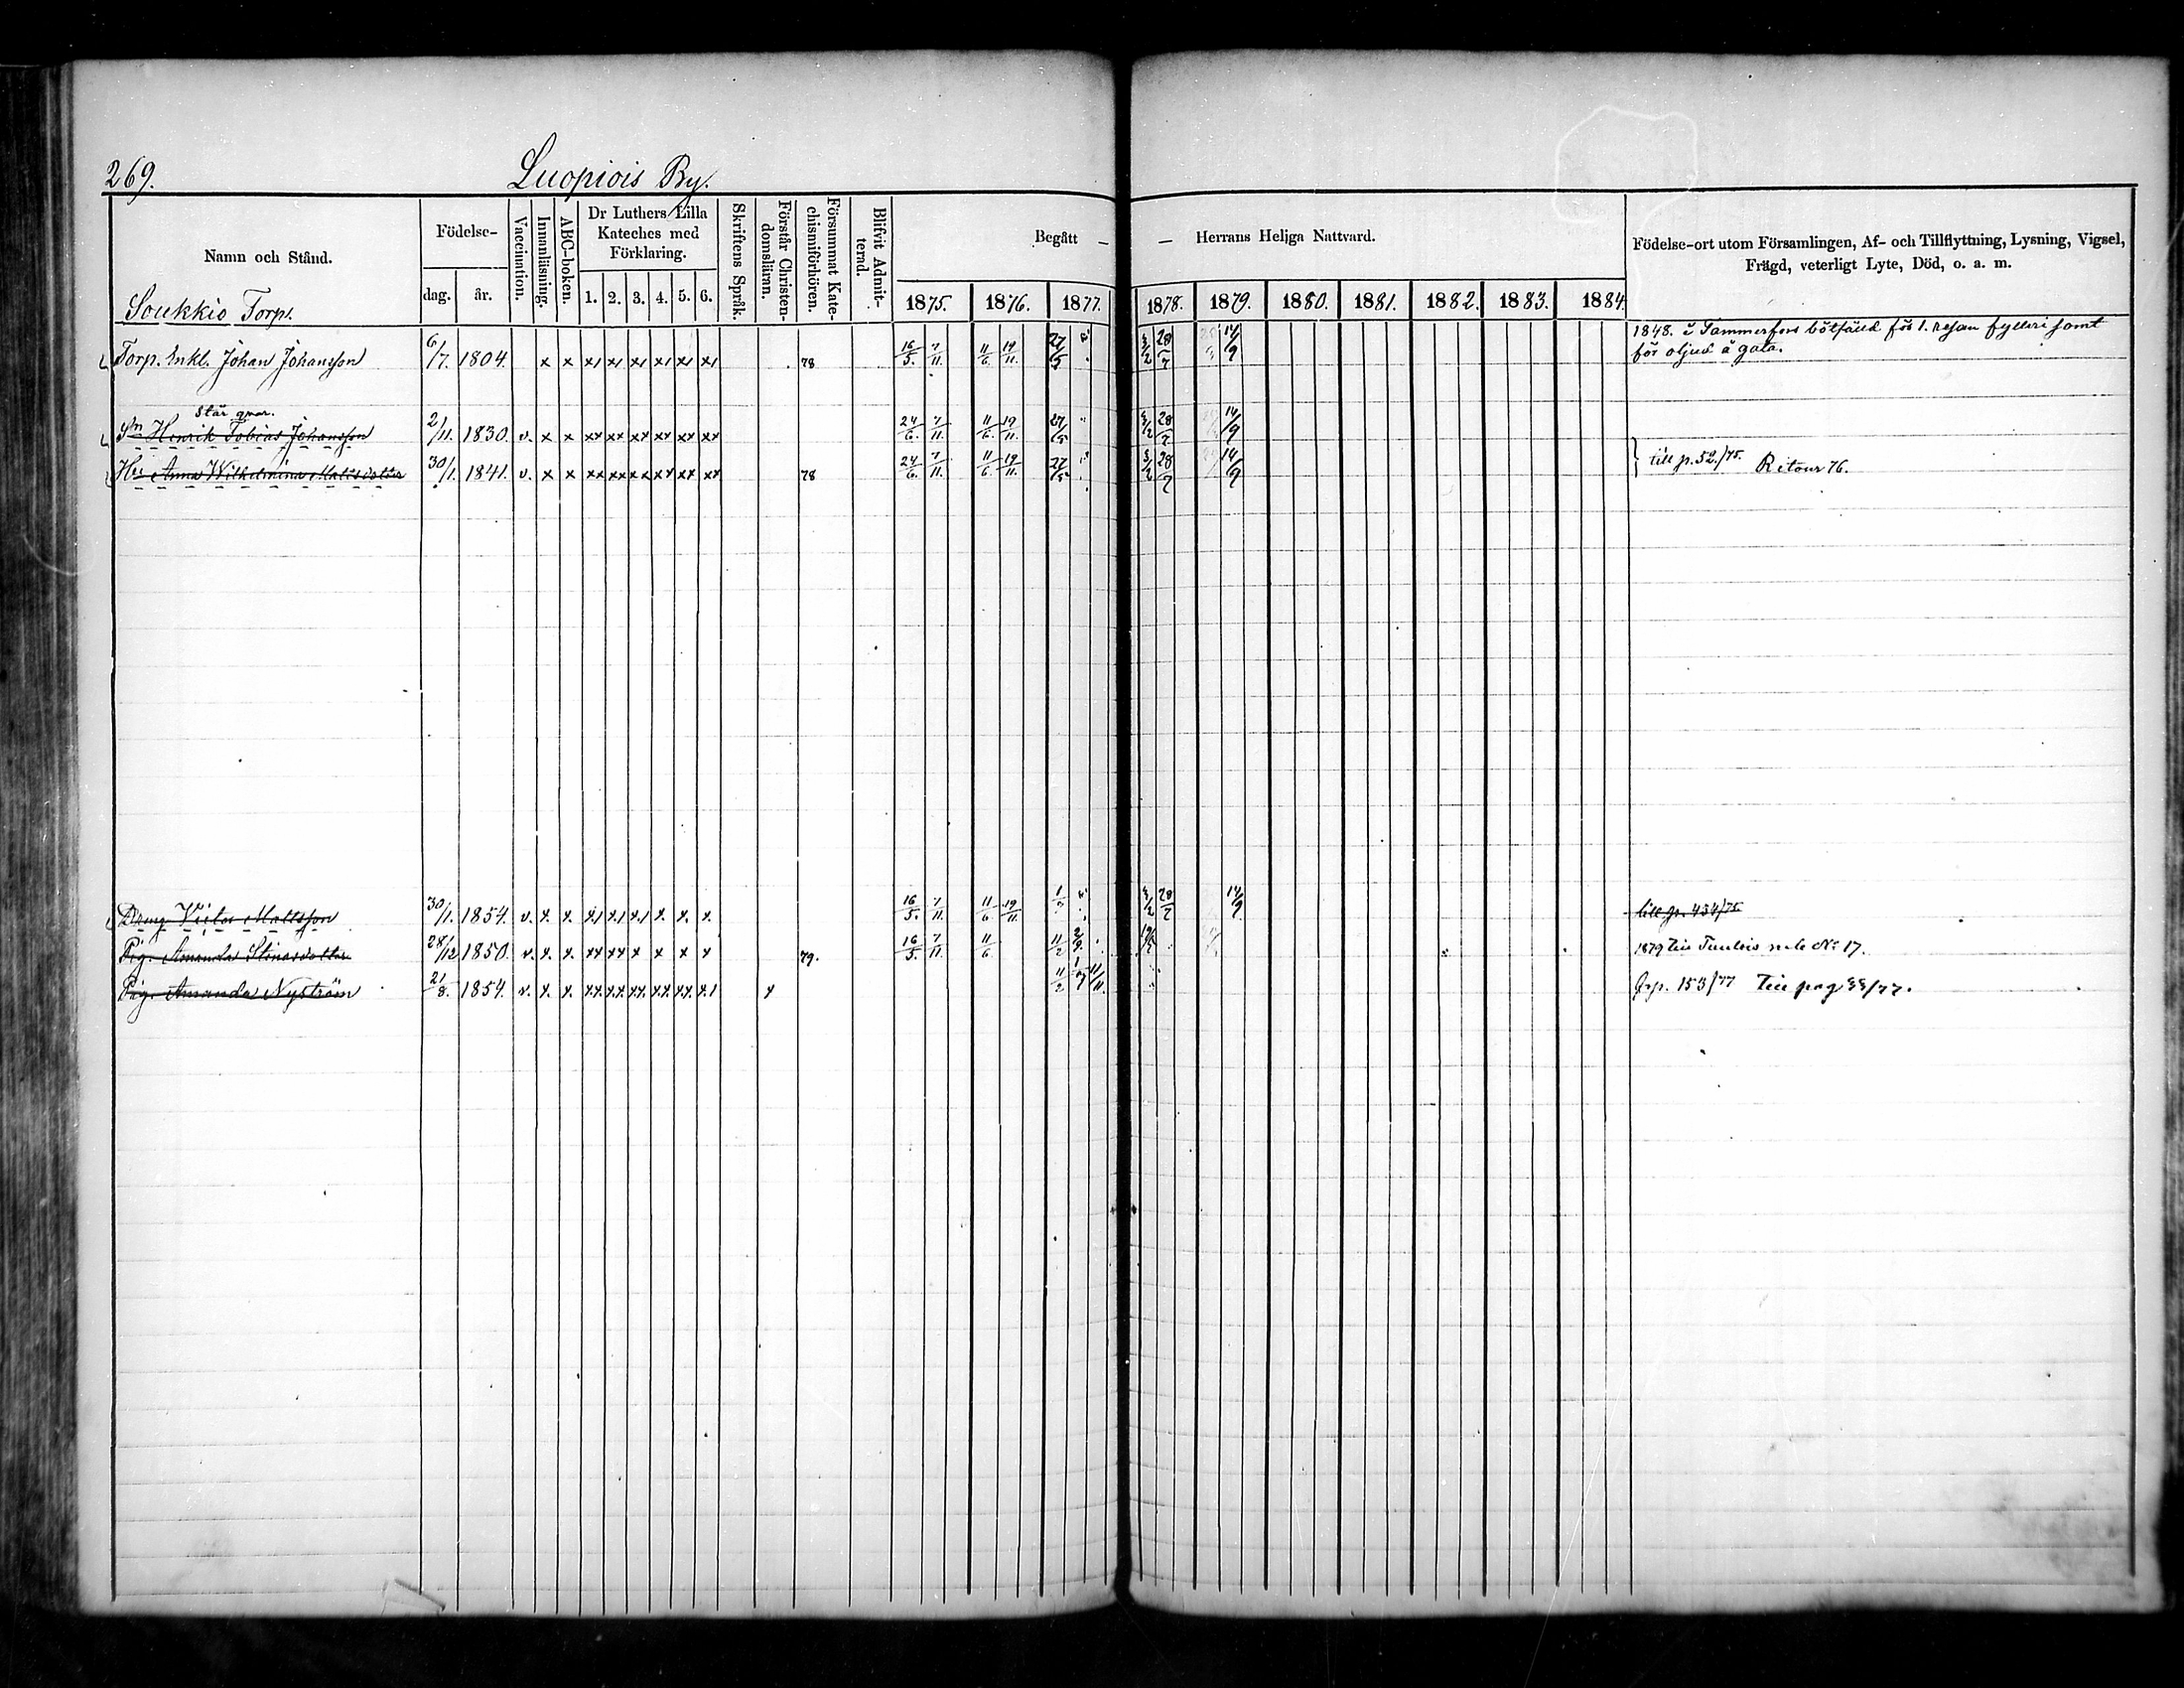 269.
Luopiois By.
Namn och Stånd.
Födelse-
dag. år.
Vaccination.
Innanläsning.
ABC-boken.
Dr Luthers Lilla
Kateches med
Förklaring.
1. 2. 3. 4. 5. 6.
Skriftens Språk.
Förstår Christen-
domsläran.
Försummat Kate-
chismiförhören.
Blifvit Admit-
terad.
Begått — — Herrans Heliga Nattvard.
1875. 1876. 1877. 1878. 1879. 1880. 1881. 1882. 1883. 1884
Födelse-ort utom Församlingen, Af- och Tillflyttning, Lysning, Vigsel,
Frägd, veterligt Lyte, Död, o. a. m.
Soukkio Torp.
1848. i Tammerfors bötfäld för 1. resan fylleri samt
Torp. Enkl. Johan Johansson 6/7. 1804. x x x1 x1 x1 x1 x1 x1 78 16/5. 7/11. 11/6. 19/11. 27/5 3/2 28/7 14/9 för oljud å gata.
står qvar.
Sn Henrik Tobias Johansson 2/11. 1830. v. x x xx xx xx xx xx xx 24/6. 7/11. 11/6. 19/11. 27/5 3/2 28/7 14/9
Hu Anna Wilhelmina Mattsdotter 30/1. 1841. v. x x xx xx xx xx xx xx 78 24/6. 7/11. 11/6. 19/11. 27/5 3/2 28/7 14/9 till p. 52./75. Retour 76.
Dräng Victor Mattsson 30/1. 1854. v. x. x. x1 x1 x1 x. x. x. 16/5. 7/11. 11/6 19/11. 3/2 28/7 14/9 till p. 434/75
Pig. Amanda Stinasdotter 28/12 1850. v. x. x. xx xx x x x x 79. 16/5. 7/11. 11/6. 11/2 1879 till Tuulois m.b. No 17.
Pig. Amanda Nyström 21/8. 1854. v. x. x. xx xx xx xx xx x1 x 11/2 11/11. fr p. 153/77 Till pag 33/77.